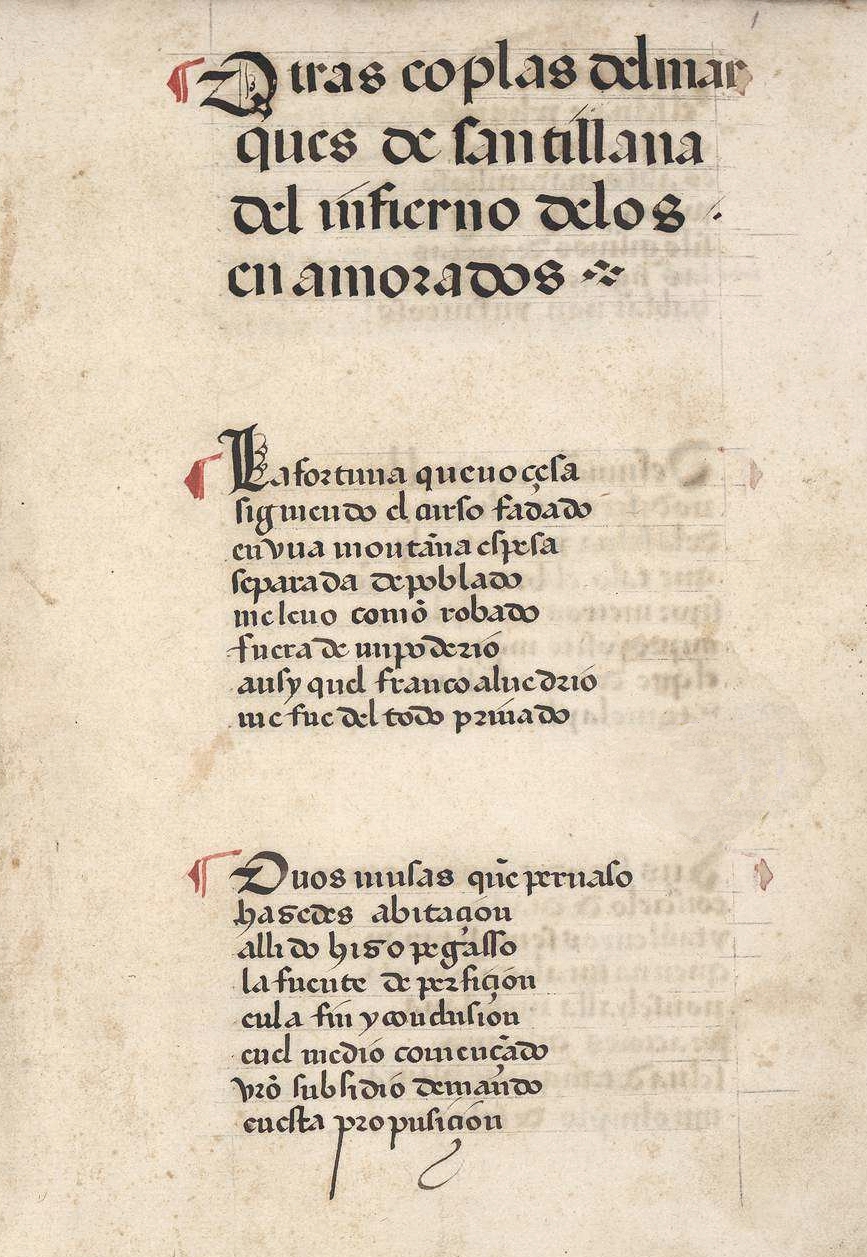 ¶ Otras coplas delmar
ques de santillana
del infierno delos
en amorados
¶ La fortuna que no çesa
siguiendo el curso fadado
en vna montãna espesa
separada de poblado
me leuo comõ robado
fuera de mi poderio
asy quel franco aluedrio
me fue del todo priuado
¶ Duos musas quẽ pernaso
hasedes abitaçion
alli do hiso pegasso
la fuente de perfiçion
en la fin y conclusion
en el medio començado
vrõ subsidio demando
en esta proposiçion